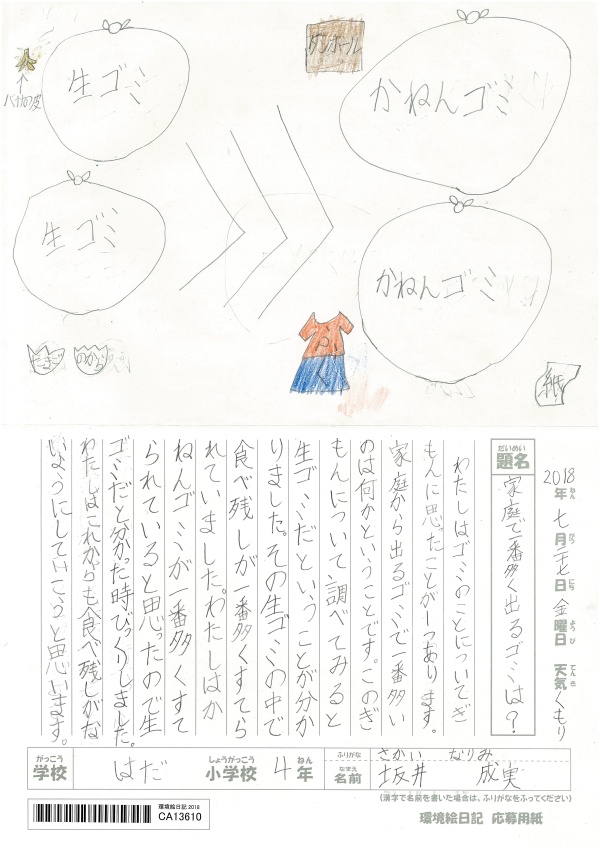 生ゴミ
↑
バナナの皮
ダンボール
かねんゴミ
生ゴミ
かねんゴミ
たまご
のから
紙
2018年 七月二七日 金曜日 天気 くもり
ねん がつ にち ようび てんき
だいめい
題名
家庭で一番多く出るゴミは?
わたしはゴミのことについてぎ
もんに思ったことが一つあります。
家庭から出るゴミで一番多い
のは何かということです。このぎ
もんについて調べてみると
生ゴミだということが分か
りました。その生ゴミの中で
食べ残しが一番多くすてら
れていました。わたしはか
ねんゴミが一番多くすて
られていると思ったので生
ゴミだと分かった時びっくりしました。
わたしはこれからも食べ残しがな
いようにしていこうと思います。
がっこう しょうがっこう ねん
学校 はだ 小学校 4年
ふりがな さかい なりみ
なまえ
名前 坂井 成実
(漢字で名前を書いた場合は、ふりがなをふってください)
環境絵日記 2018
CA13610
環境絵日記 応募用紙